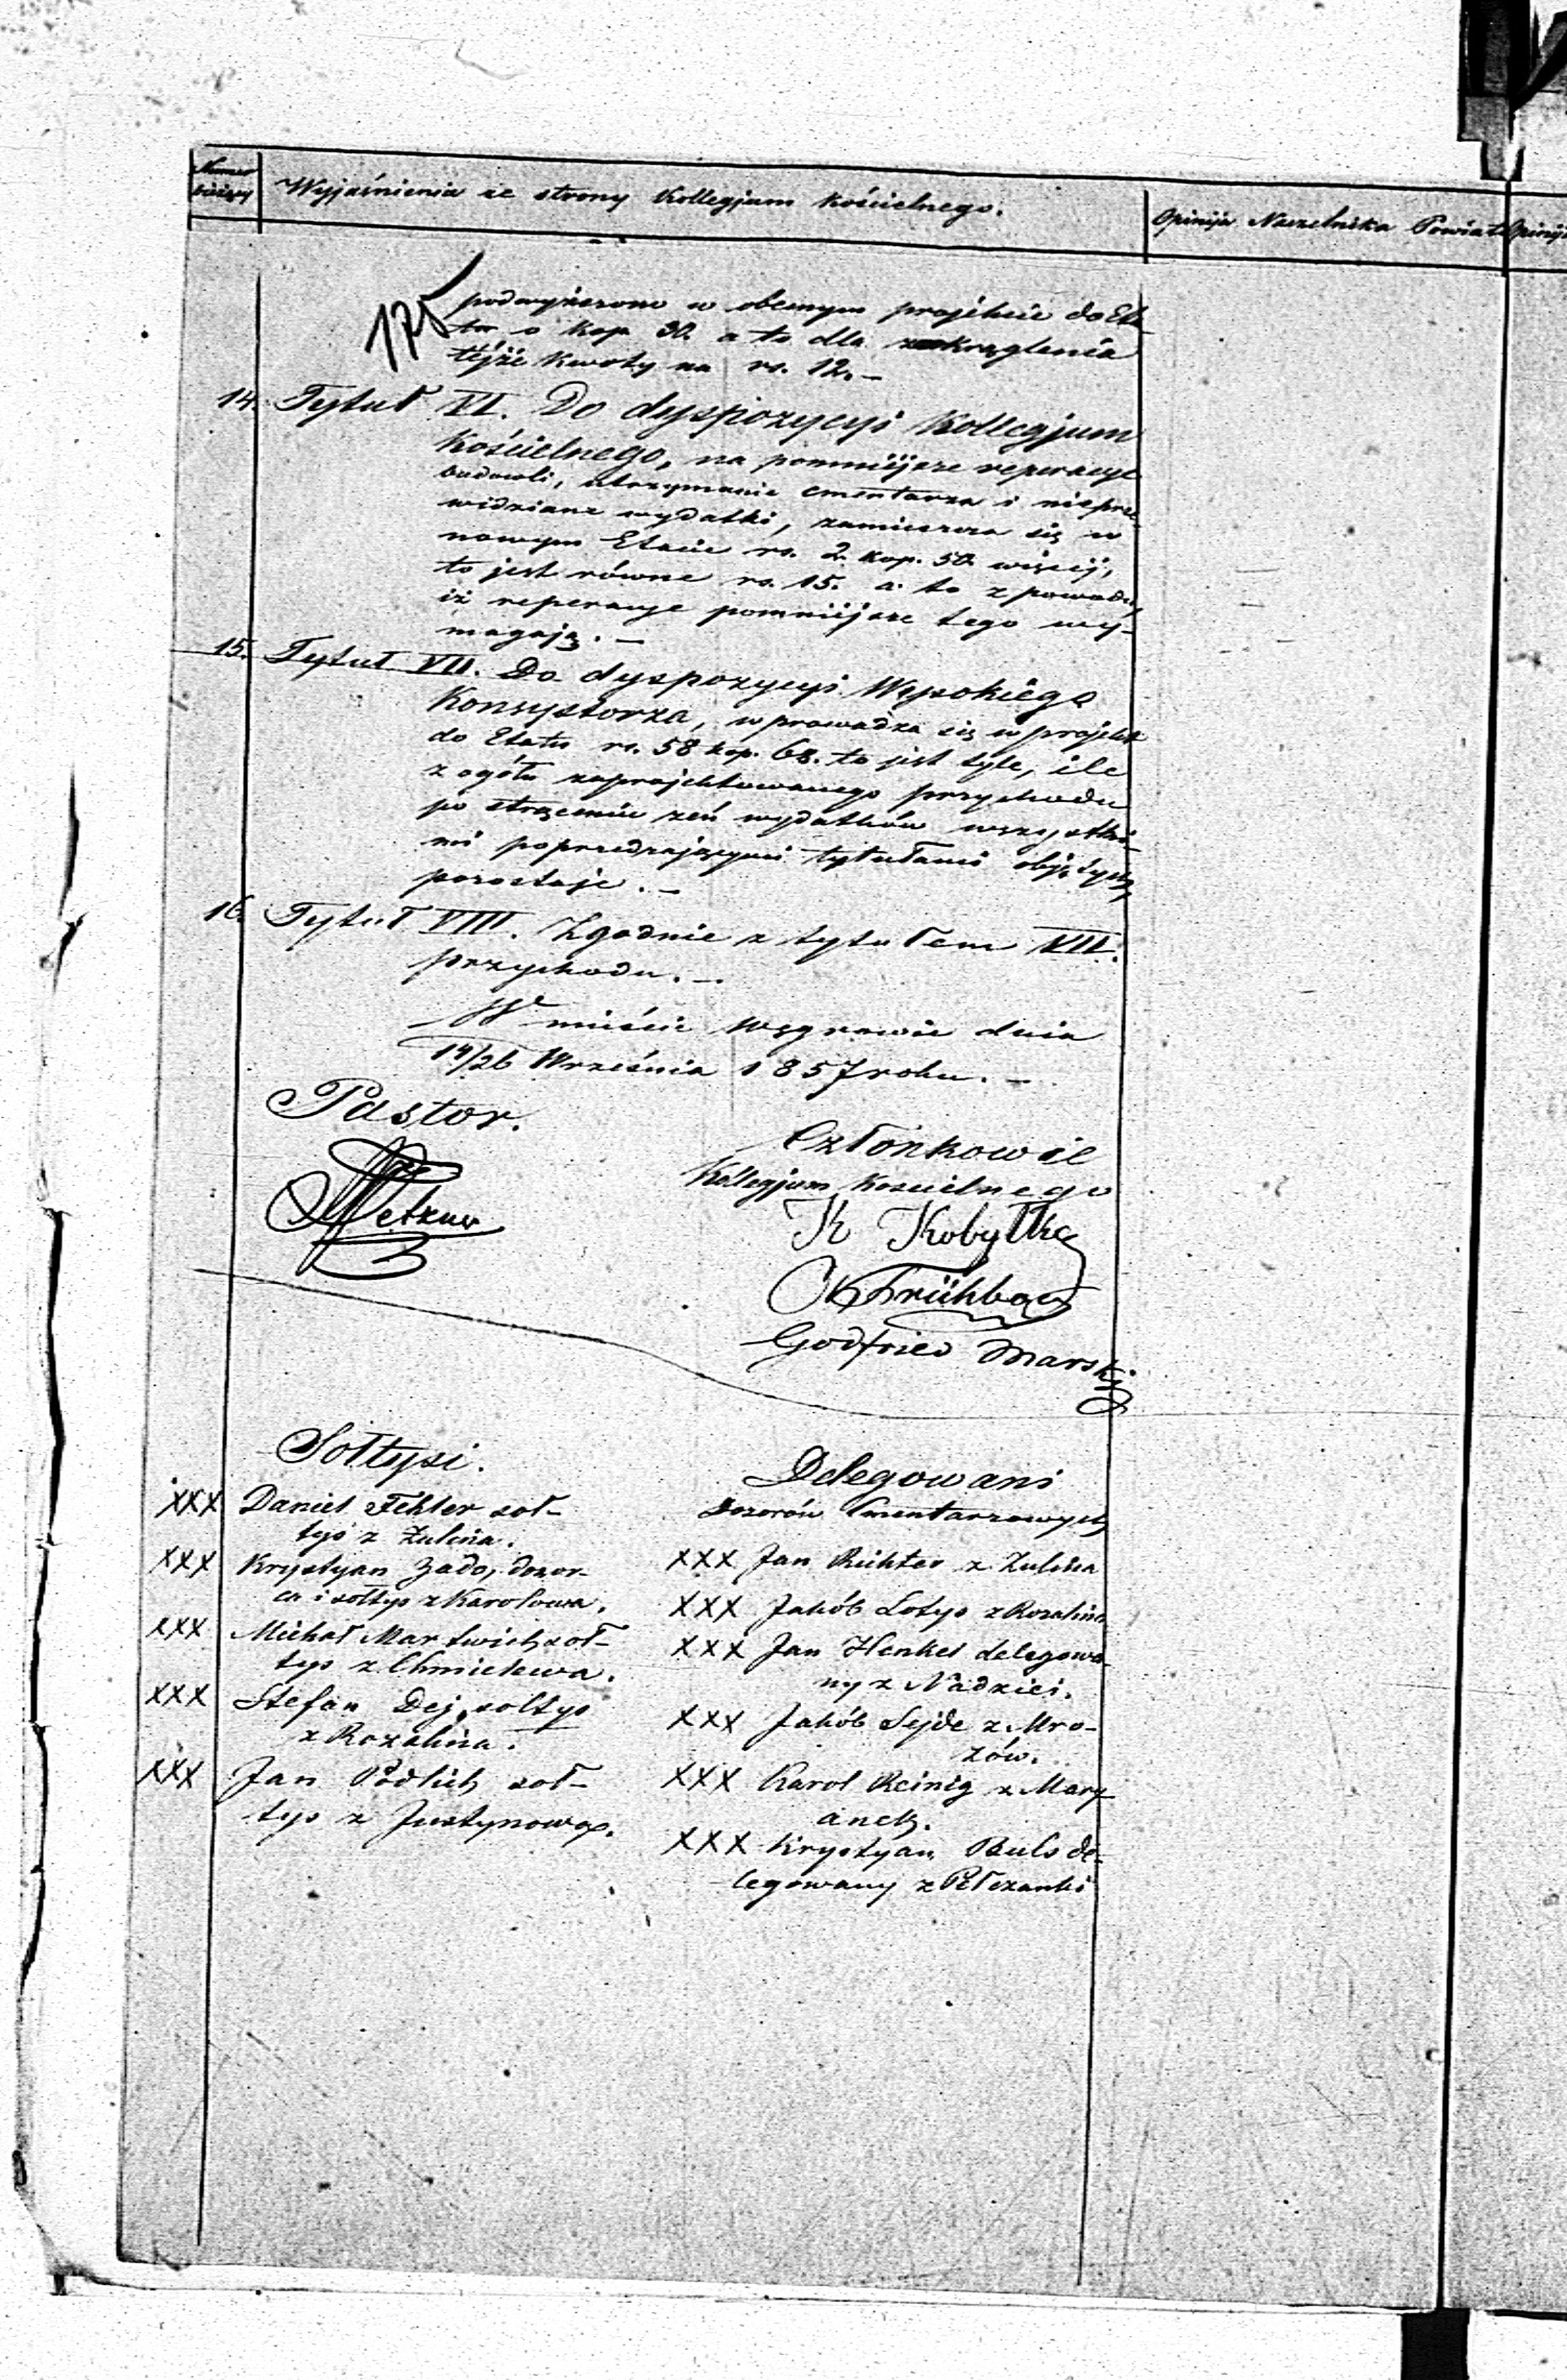 Numer
bieżący
Wyjaśnienia ze strony Kollegjum Kościelnego.
Opinija Naczelnika Powiatu
Opinija
175
podwyższono w obecnym projekcie do Eta-
tu o kop. 30. a to dla zaokrąglenia
tejże kwoty na rs. 12.—
14. Tytuł VI. Do dyspozycyi Kollegjum
Kościelnego, na pomniejsze reperacye
budowli, utrzymanie cmentarza i nieprze-
widziane wydatki, zamieszcza się w
nowym Etacie rs. 2. kop. 50. więcej,
to jest równe rs. 15. a to z powodu,
iż reperacye pomniejsze tego wy-
magają.—
15. Tytuł VII. Do dyspozycyi Wysokiego
Konsystorza, wprowadza się w projekt
do Etatu rs. 58 kop. 68. to jest tyle, ile
z ogółu zaprojektowanego przychodu
po strąceniu zeń wydatków wszystki-
mi poprzedzającymi tytułami objętych,
pozostaje.—
16. Tytuł VIII. Zgodnie z tytułem VII.
przychodu.—
W mieście Węgrowie dnia
14/26 Września 1857 roku.—
Pastor.
Członkowie
Kollegjum Kościelnego
K Kobyłka
Godfried Marski
Sołtysi.
Delegowani
Dozorów Cmentarzowych
XXX Daniel Fehler soł-
tys z Zulina.
XXX Krystyan Zado, dozor-
ca i sołtys z Karolowa.
XXX Michał Martwich soł-
tys z Chmielewa.
XXX Stefan Dej, sołtys
z Rozalina.
XXX Jan Podlich soł-
tys z Justynowa.
XXX Jan Richter z Zulina
XXX Jakób Lotys z Rozalina
XXX Jan Henkel delegowa-
ny z Nadziei.
XXX Jakób Sejde z Mro-
zów.
XXX Karol Reinig z Mary-
anek.
XXX Krystyan Buls de-
legowany z Pełczanki